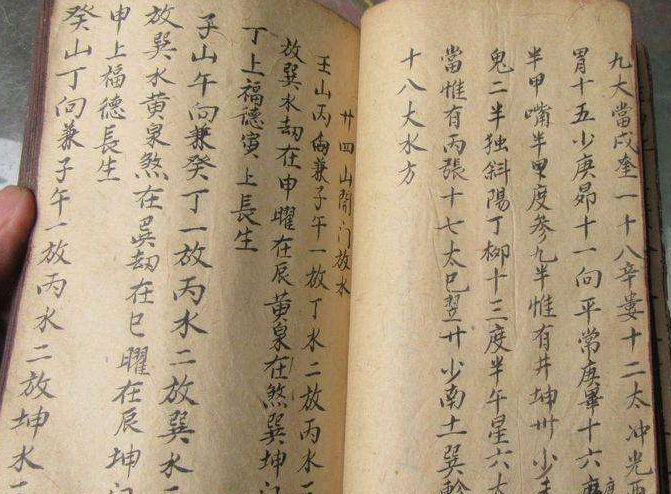 九大當戌奎一十八辛婁十二太冲光酉
胃十五少庚昴十一向平常庚畢十六度
半甲嘴半甲度參九半惟有井坤卅少
鬼二半独斜陽丁柳十三度半午星六太
當惟有丙張十七太巳翌廿少南土巽軫
十八大水方
廿四山開门放水
壬山丙向兼子午一放丁水二放丙水
放巽水劫在申曜在辰黄泉在煞巽坤门
丁上福德寅上長生
子山午向兼癸丁一放丙水二放巽水
放巽水黄泉煞在巽劫在巳曜在辰坤门
申上福德長生
癸山丁向兼子午一放丙水二放坤水